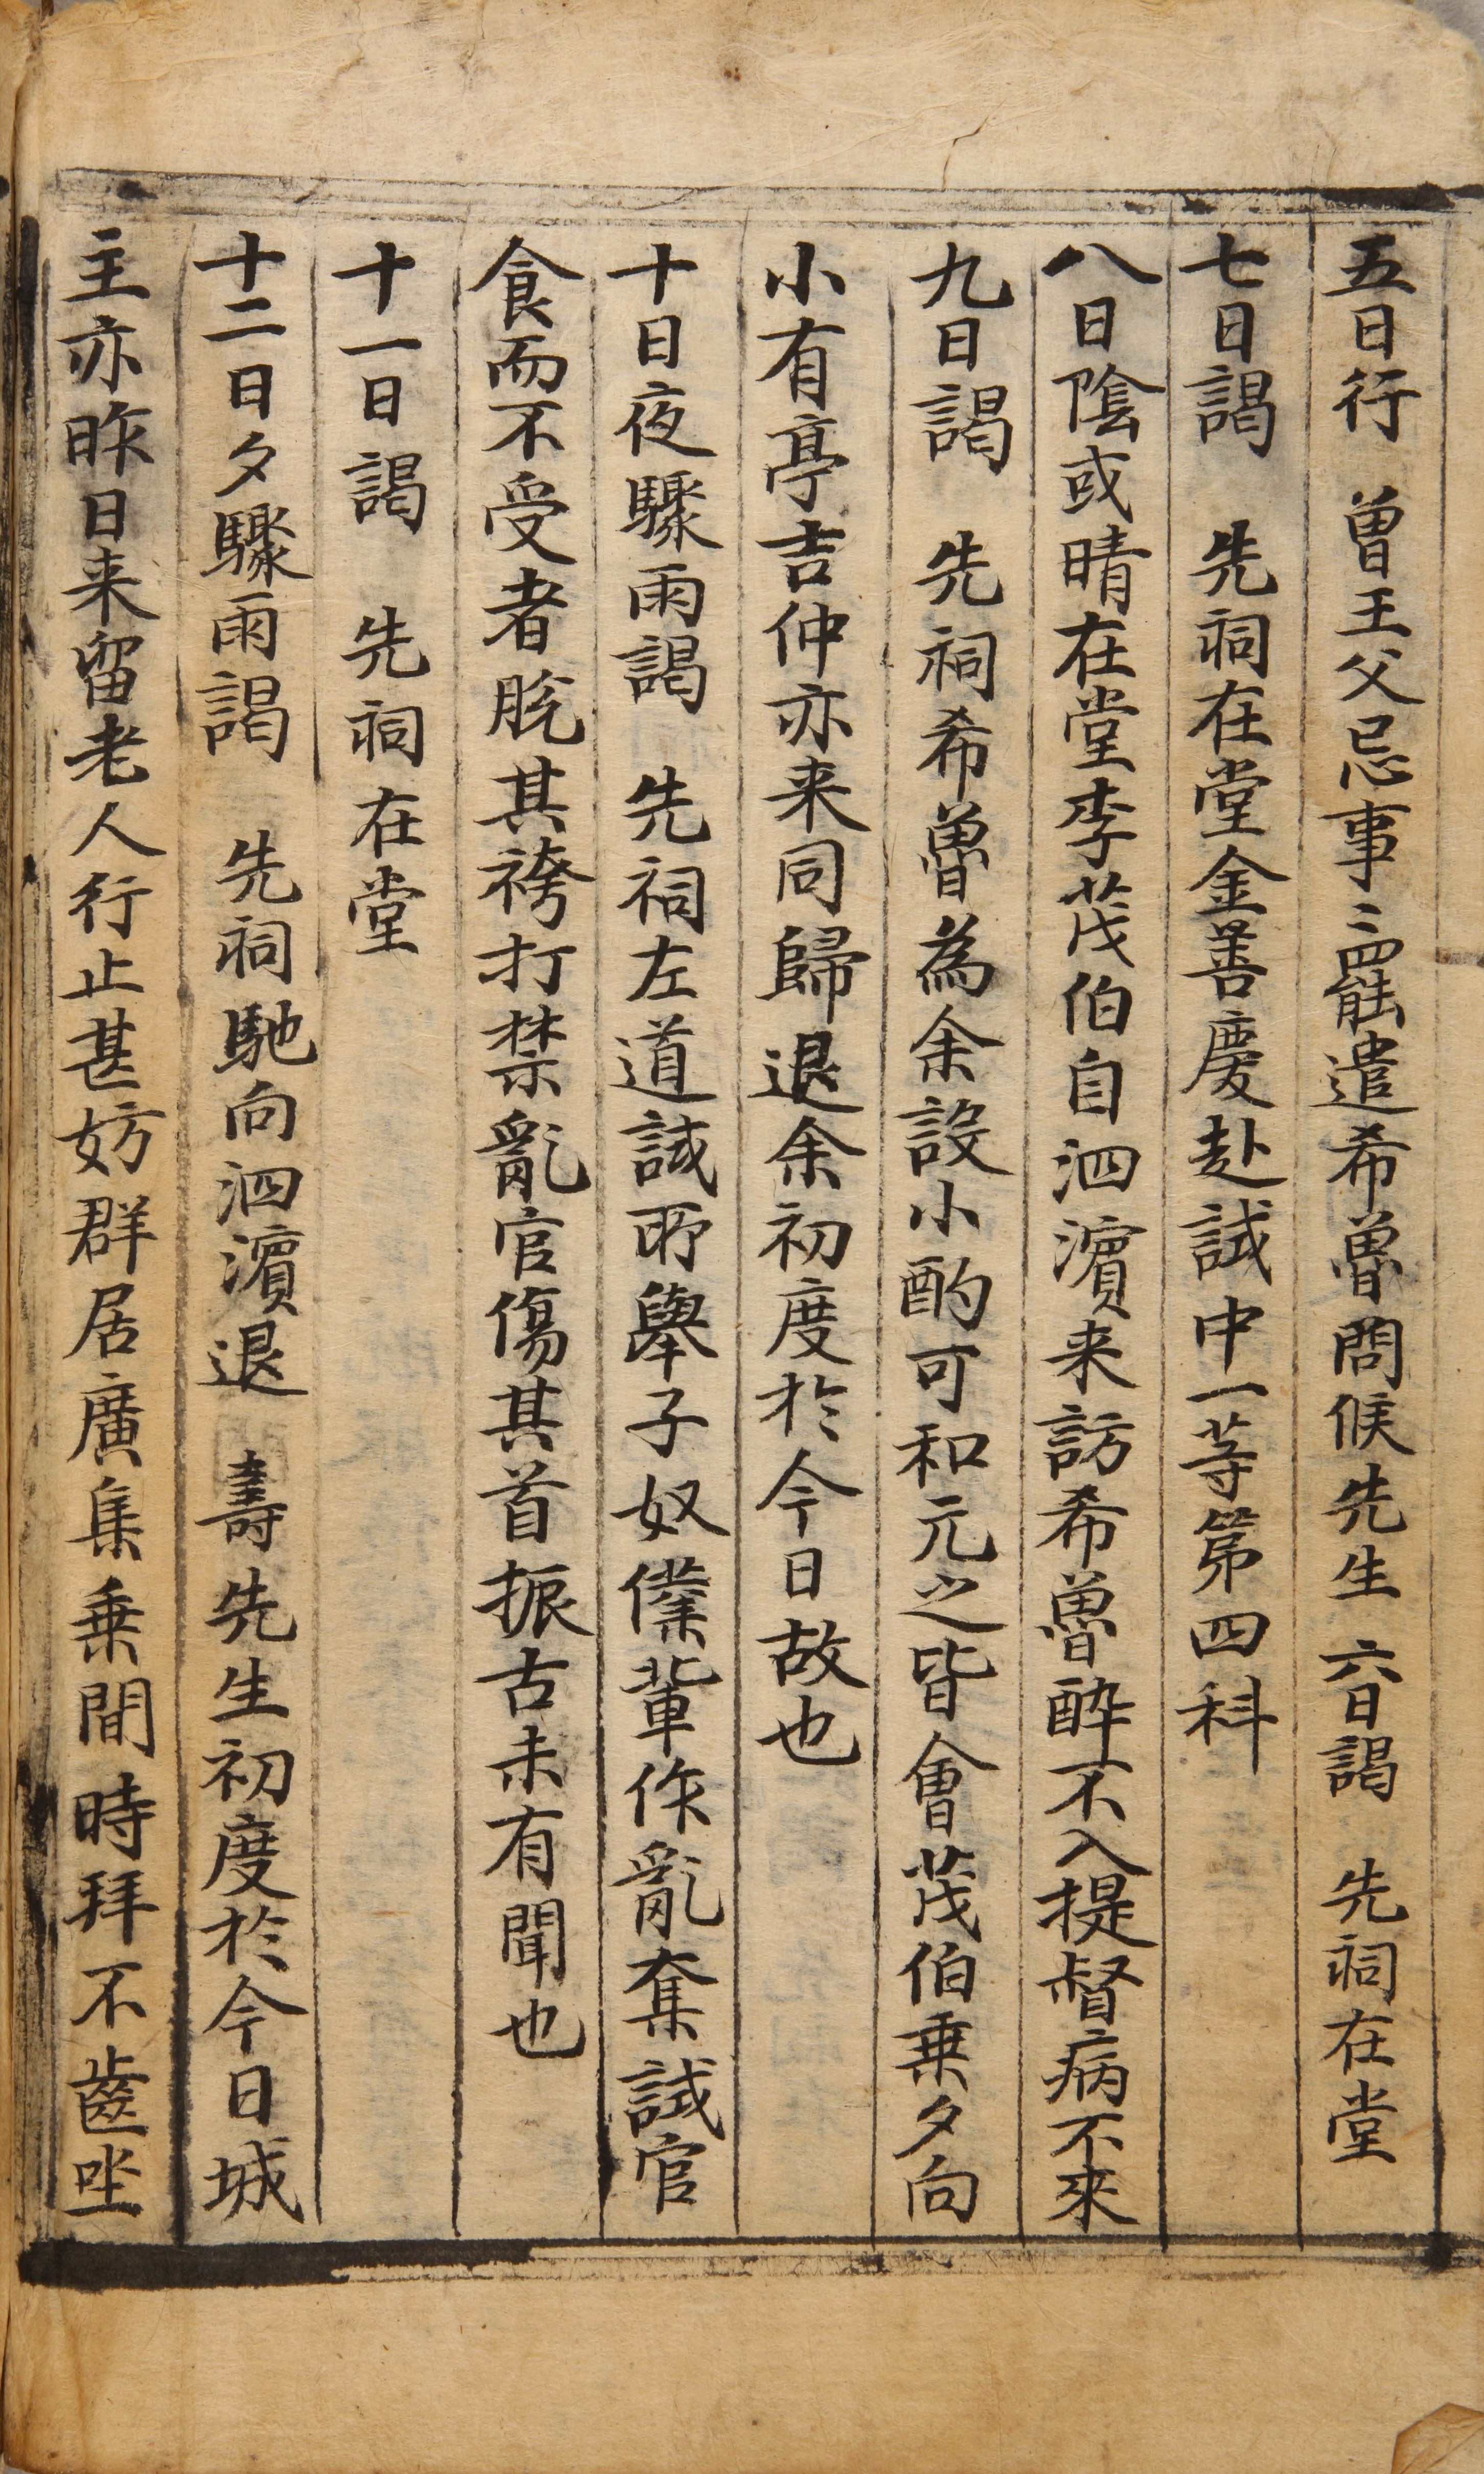 五日行 曾王父忌事〻罷遣希魯問候先生 六日謁 先祠在堂
七日謁 先祠在堂金善慶赴試中一等第四科
八日陰或晴在堂李茂伯自泗濱来訪希魯醉不入提督病不來
九日謁 先祠希魯為余設小酌可和元之皆會茂伯乗夕向
小有亭吉仲亦来同歸退余初度於今日故也
十日夜驟雨謁 先祠左道試所舉子奴僕軰作亂奪試官
食而不受者脫其袴打禁亂官傷其首振古未有聞也
十一日謁 先祠在堂
十二日夕驟雨謁 先祠馳向泗濱退 壽先生初度於今日城
主亦昨日来留老人行止甚妨群居廣集乗間時拜不齒坐